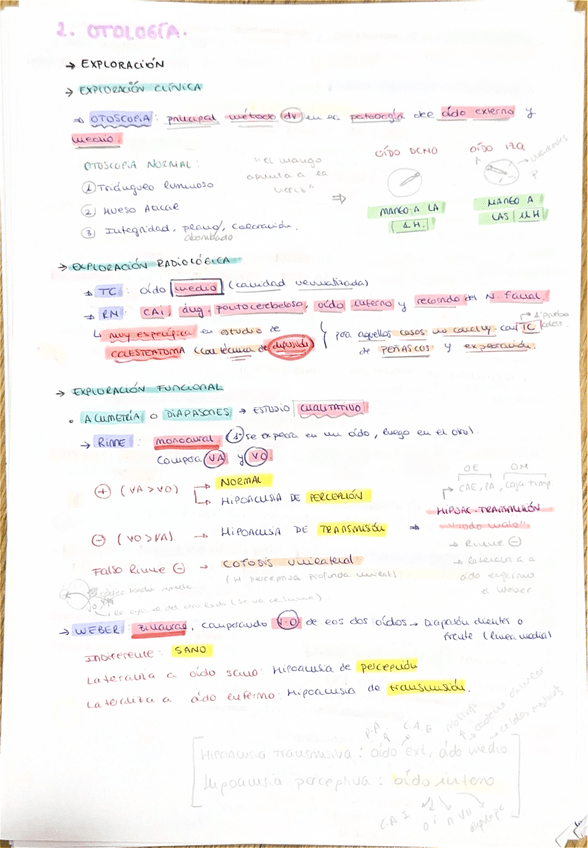 2. OTOLOGÍA.
→ EXPLORACIÓN
→ EXPLORACIÓN CLÍNICA
⇒ OTOSCOPIA: principal método dx en la patología del oído externo y
medio.
OTOSCOPIA NORMAL:
① Triángulo luminoso
② Hueso Aticar
③ Integridad, plano, coloración.
abombado
"el mango
apunta a la
⇒
OÍDO DCHO
MANGO A LA
1 H.
OÍDO IZQ
MANGO A
LAS 11 H
→ EXPLORACIÓN RADIOLÓGICA
→ TC: oído medio (cavidad neumatizada)
→ RN: CAI, áng. pontocerebeloso, oído interno y recorrido del N. Facial.
↳ muy específica en estudio de
COLESTEATOMA (con técnica de difusión)
por aquellos casos no con TC
de PEÑASCOS y exploración.
→ EXPLORACIÓN FUNCIONAL
• ACUMETRÍA O DIAPASONES → ESTUDIO CUALITATIVO
→ RINNE: monoaural (1º se explora en un oído, luego en el otro).
Compara VA y VO.
+ (VA>VO) → NORMAL
↳ HIPOACUSIA DE PERCEPCIÓN
- (VO>VA) → HIPOACUSIA DE TRANSMISIÓN ⇒
Falso Rinne - → COFOSIS unilateral
(H perceptiva profunda unilat)
OE OM
CAE, PA, Caja timp
HIPOAC. TRANSMISIÓN
→ Rinne -
→ Lateraliza a
oído enfermo
el weber
→ WEBER: Binaural, comparando VO de los dos oídos → Diapasón dientes o
frente (línea media)
Indiferente: SANO
Lateraliza a oído sano: Hipoacusia de percepción
Lateraliza a oído enfermo: Hipoacusia de transmisión.
P.A C.A.E
Hipoacusia transmisiva: oído ext, oído medio
Hipoacusia perceptiva: oído interno
C.A.I